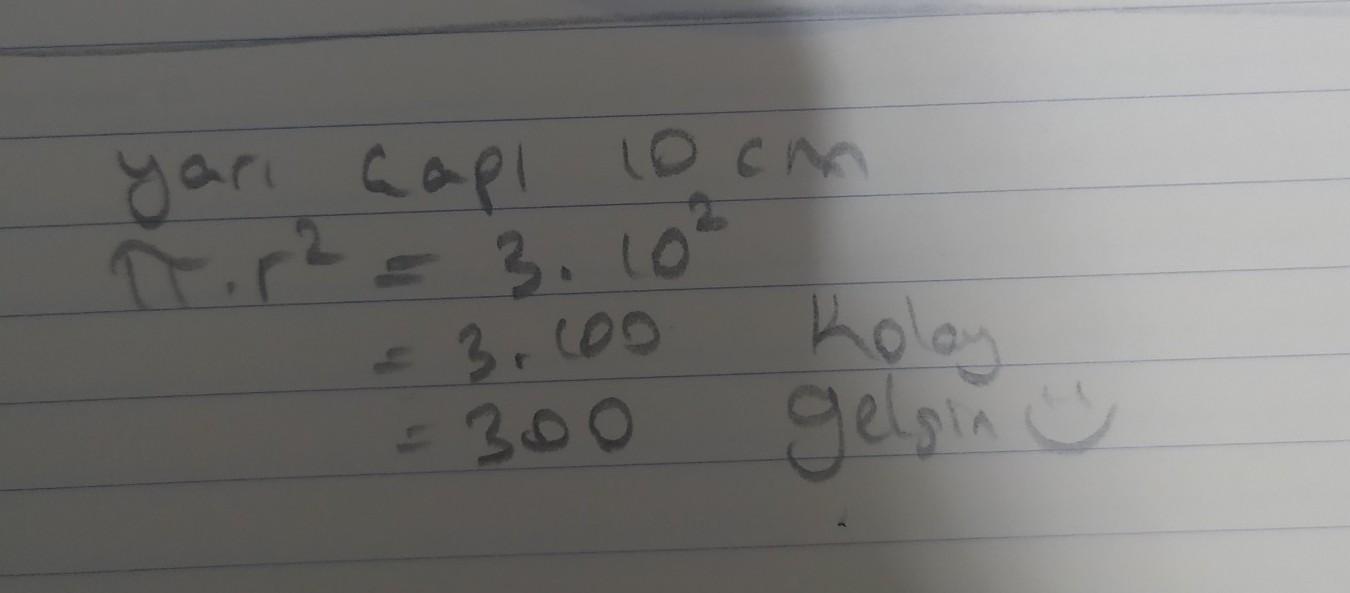 yarı Çapı 10 cm
π.r² = 3.10²
= 3.100 Kolay
= 300 gelsin